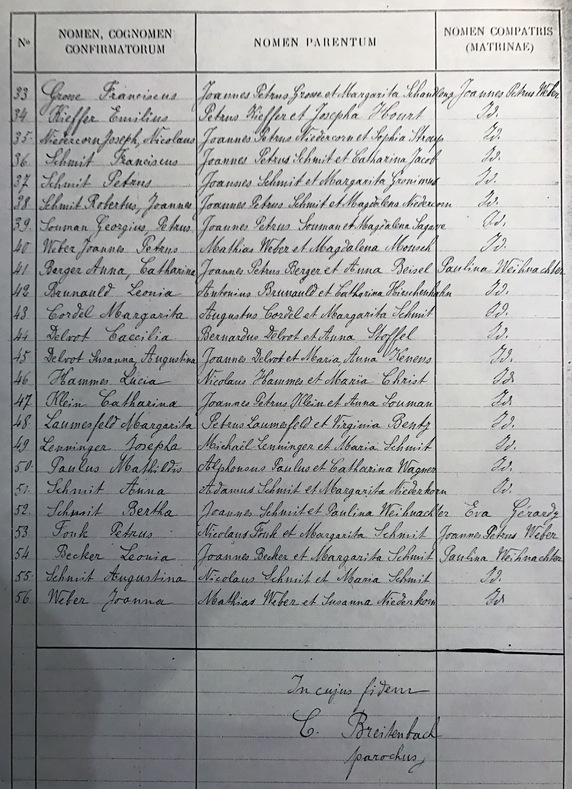 No NOMEN, COGNOMEN CONFIRMATORUM NOMEN PARENTUM NOMEN COMPATRIS (MATRINAE)
33 Grosse Franciscus Joannes Petrus Grosse et Margarita Joannes Petrus Weber
34 Kieffer Emilius Petrus Kieffer et Josepha Hourt Id.
35. Niedercorn Joseph, Nicolaus Joannes Petrus Niedercorn et Sophia Id.
36. Schmit Franciscus Joannes Petrus Schmit et Catharina Jacob Id.
37 Schmit Petrus Joannes Schmit et Margarita Gronimus Id.
38 Schmit Robertus, Joannes Joannes Petrus Schmit et Magdalena Nidercorn Id.
39. Souman Georgius, Petrus Joannes Petrus Souman et Magdalena Id.
40 Weber Joannes Petrus Mathias Weber et Magdalena Id.
41 Berger Anna, Catharina Joannes Petrus Berger et Anna Beisel Paulina Weihnachter
42 Brunauld Leonia Antonius Brunauld et Catharina Id.
43 Cordel Margarita Augustus Cordel et Margarita Schmit Id.
44 Delvot Caecilia Bernardus Delvot et Anna Stoffel Id.
45 Delvot Susanna, Augustina Joannes Delvot et Maria, Anna Id.
46 Hammes Lucia Nicolaus Hammes et Maria Christ Id.
47 Klein Catharina Joannes Petrus Klein et Anna Souman Id.
48 Laumesfeld Margarita Petrus Laumesfeld et Virginia Bentz Id.
49 Lenninger Josepha Michaël Lenninger et Maria Schmit Id.
50 Paulus Mathildis Alphonsus Paulus et Catharina Wagner Id.
51. Schmit Anna Adamus Schmit et Margarita Niederkorn Id.
52. Schmit Bertha Joannes Schmit et Paulina Weihnachter Eva Gerardy
53 Fonk Petrus Nicolaus Fonk et Margarita Schmit Joannes Petrus Weber
54 Becker Leonia Joannes Becker et Margarita Schmit Paulina Weihnachter
55 Schmit Augustina Nicolaus Schmit et Maria Schmit Id.
56. Weber Joanna Mathias Weber et Susanna Niederkorn Id.
In cujus fidem
C. Breitenbach
parochus